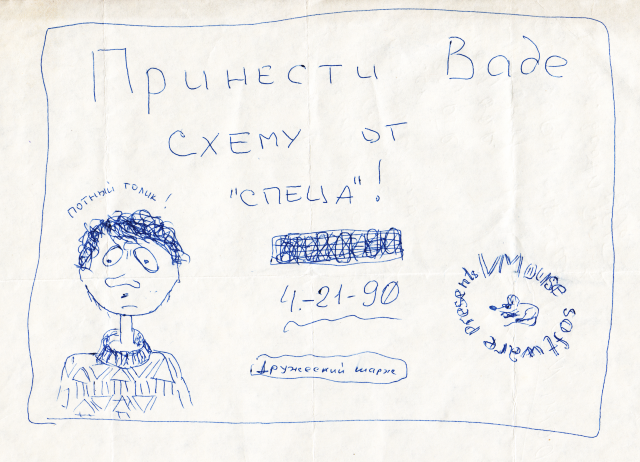 Принести Ваде
схему от
"спеца"!
потный толик!
4.-21-90
Дружеский шарж
VMouse software presents